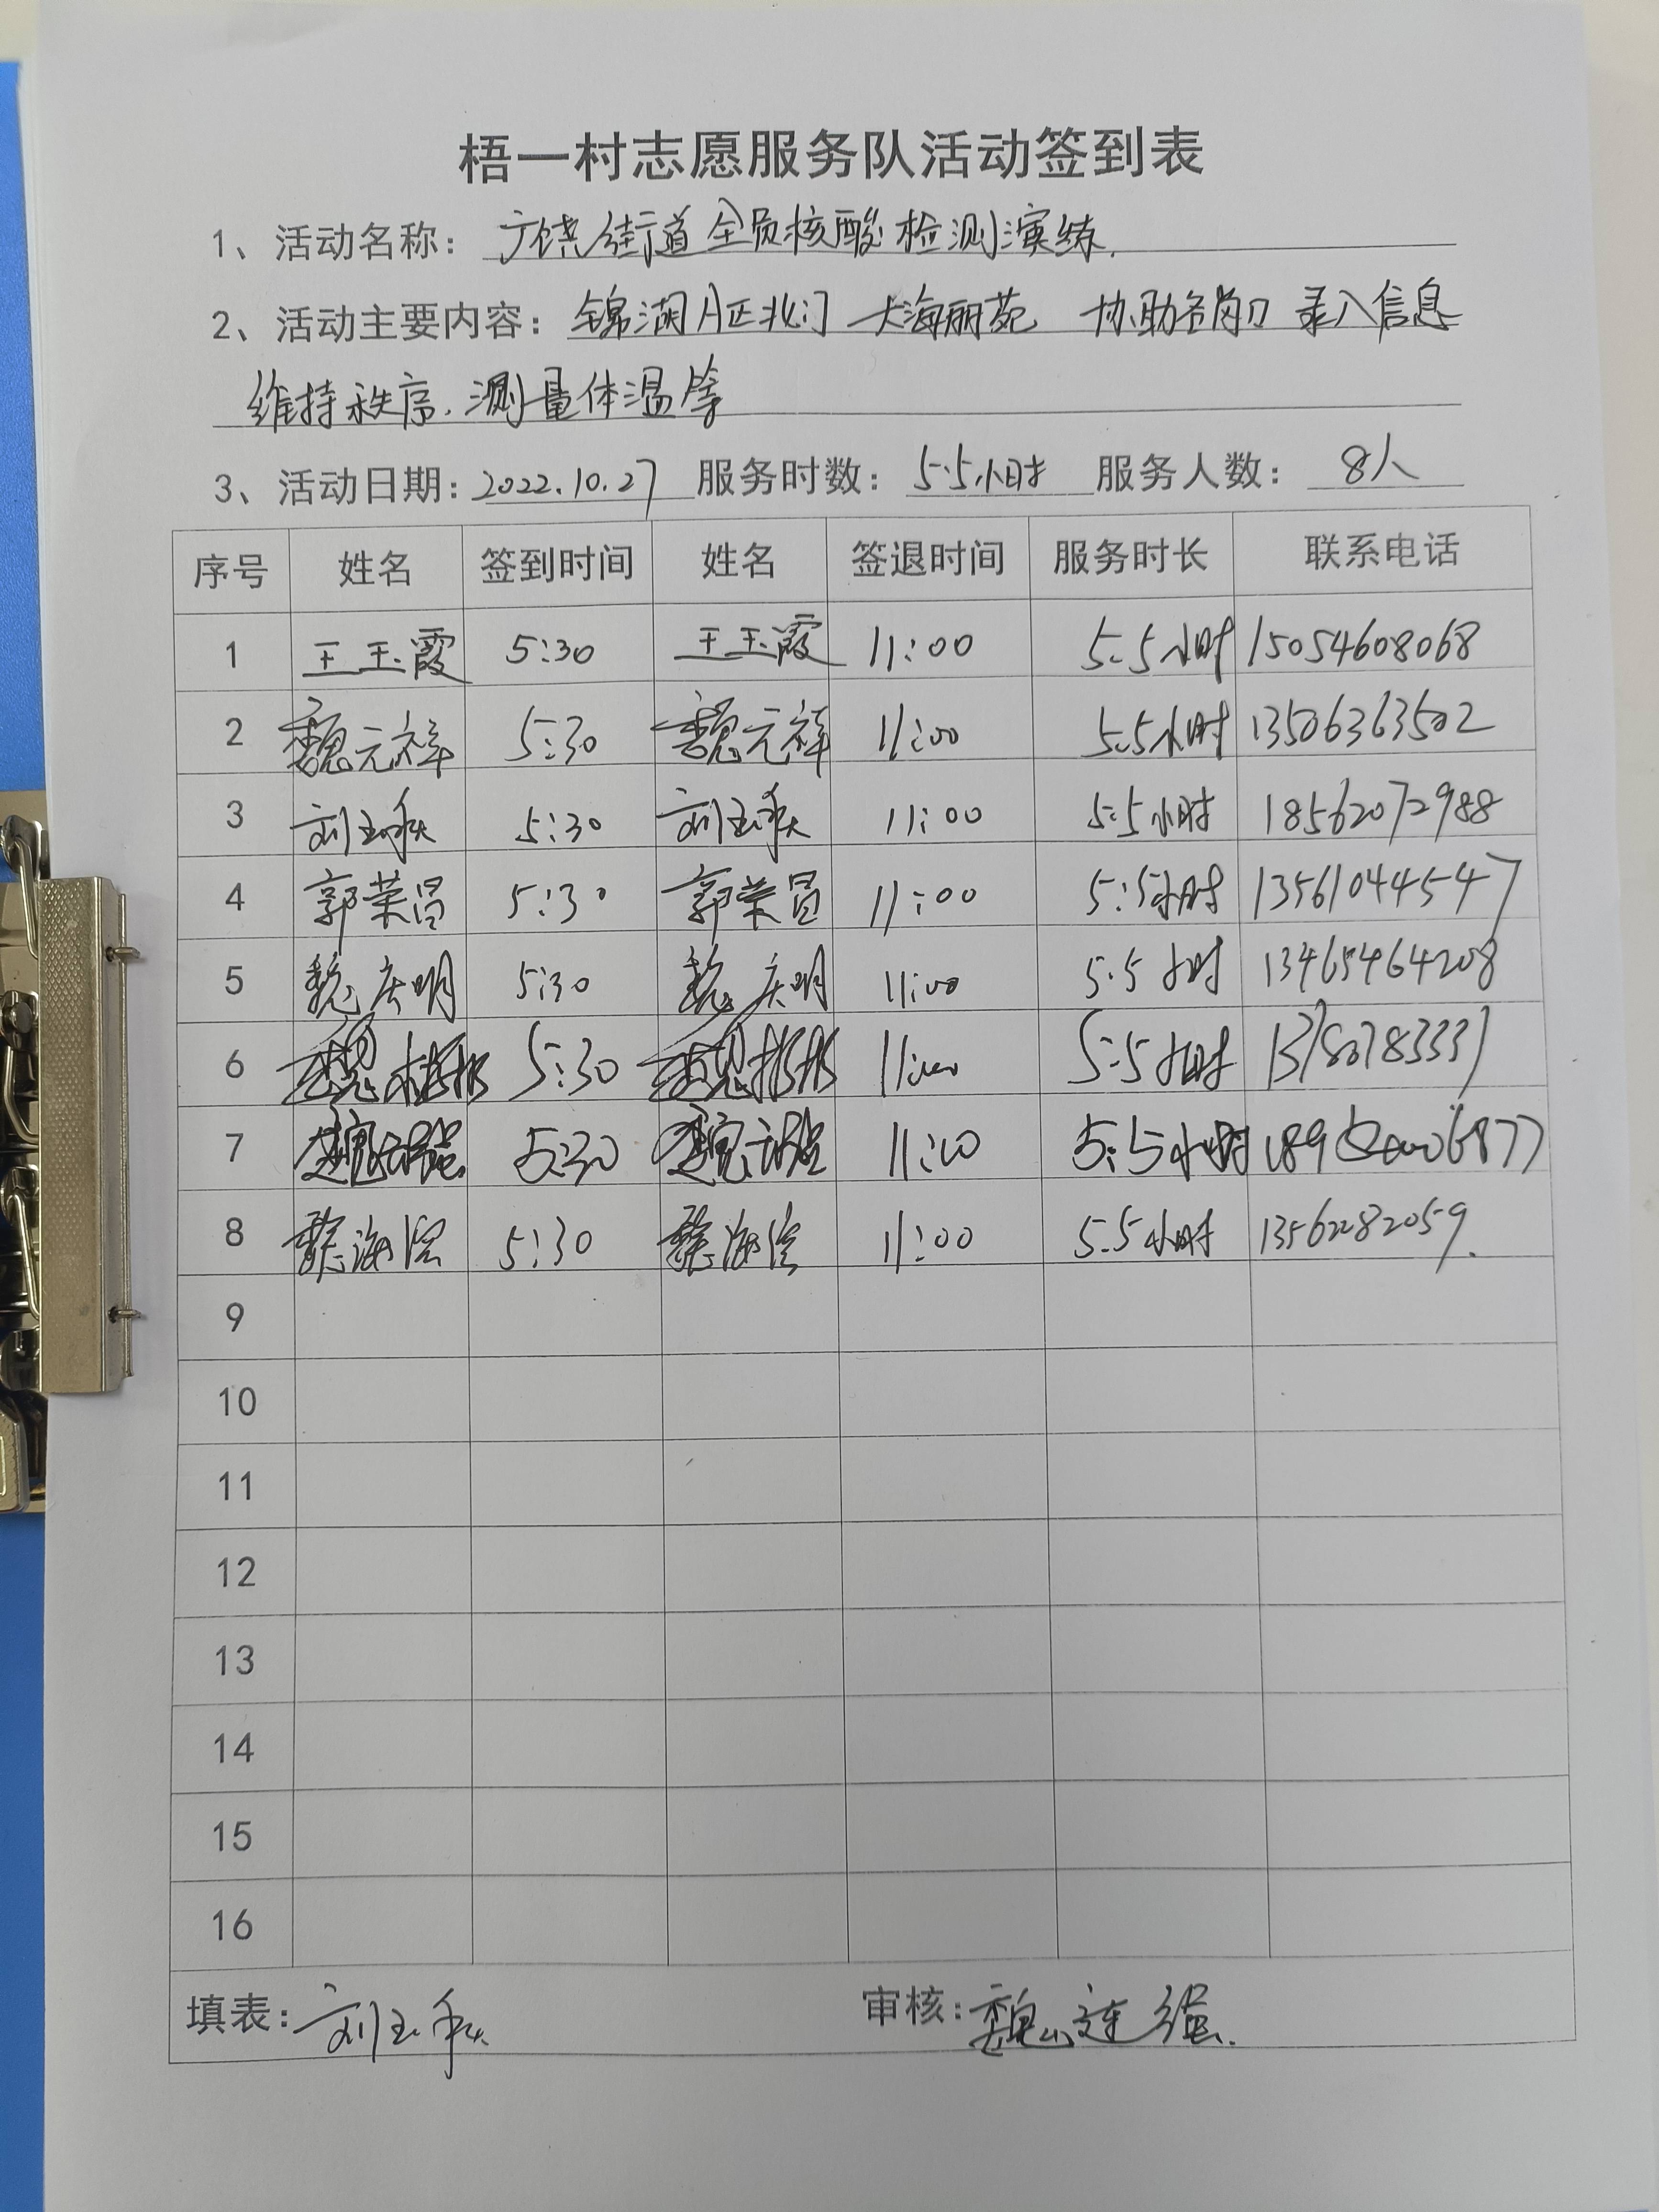 梧一村志愿服务队活动签到表
1、活动名称: 广饶街道全员核酸检测演练.
2、活动主要内容: 锦湖片区北门 大海丽苑 协助各岗口 录入信息
维持秩序. 测量体温等
3、活动日期: 2022.10.27 服务时数: 5.5小时 服务人数: 8人
序号 姓名 签到时间 姓名 签退时间 服务时长 联系电话
1 王玉霞 5:30 王玉霞 11:00 5.5小时 15054608068
2 魏元祥 5:30 魏元祥 11:00 5.5小时 13506363502
3 刘玉秋 5:30 刘玉秋 11:00 5.5小时 18562072988
4 郭荣昌 5:30 郭荣昌 11:00 5:5小时 13561044547
5 魏庆明 5:30 魏庆明 11:00 5.5小时 13465464208
6 魏 5:30 魏 11:00 5:5小时 13780783331
7 魏 5:30 魏 11:00 5:5小时
8 綦海滨 5:30 綦海滨 11:00 5.5小时 13562282059.
9
10
11
12
13
14
15
16
填表: 刘玉秋 审核: 魏连强.